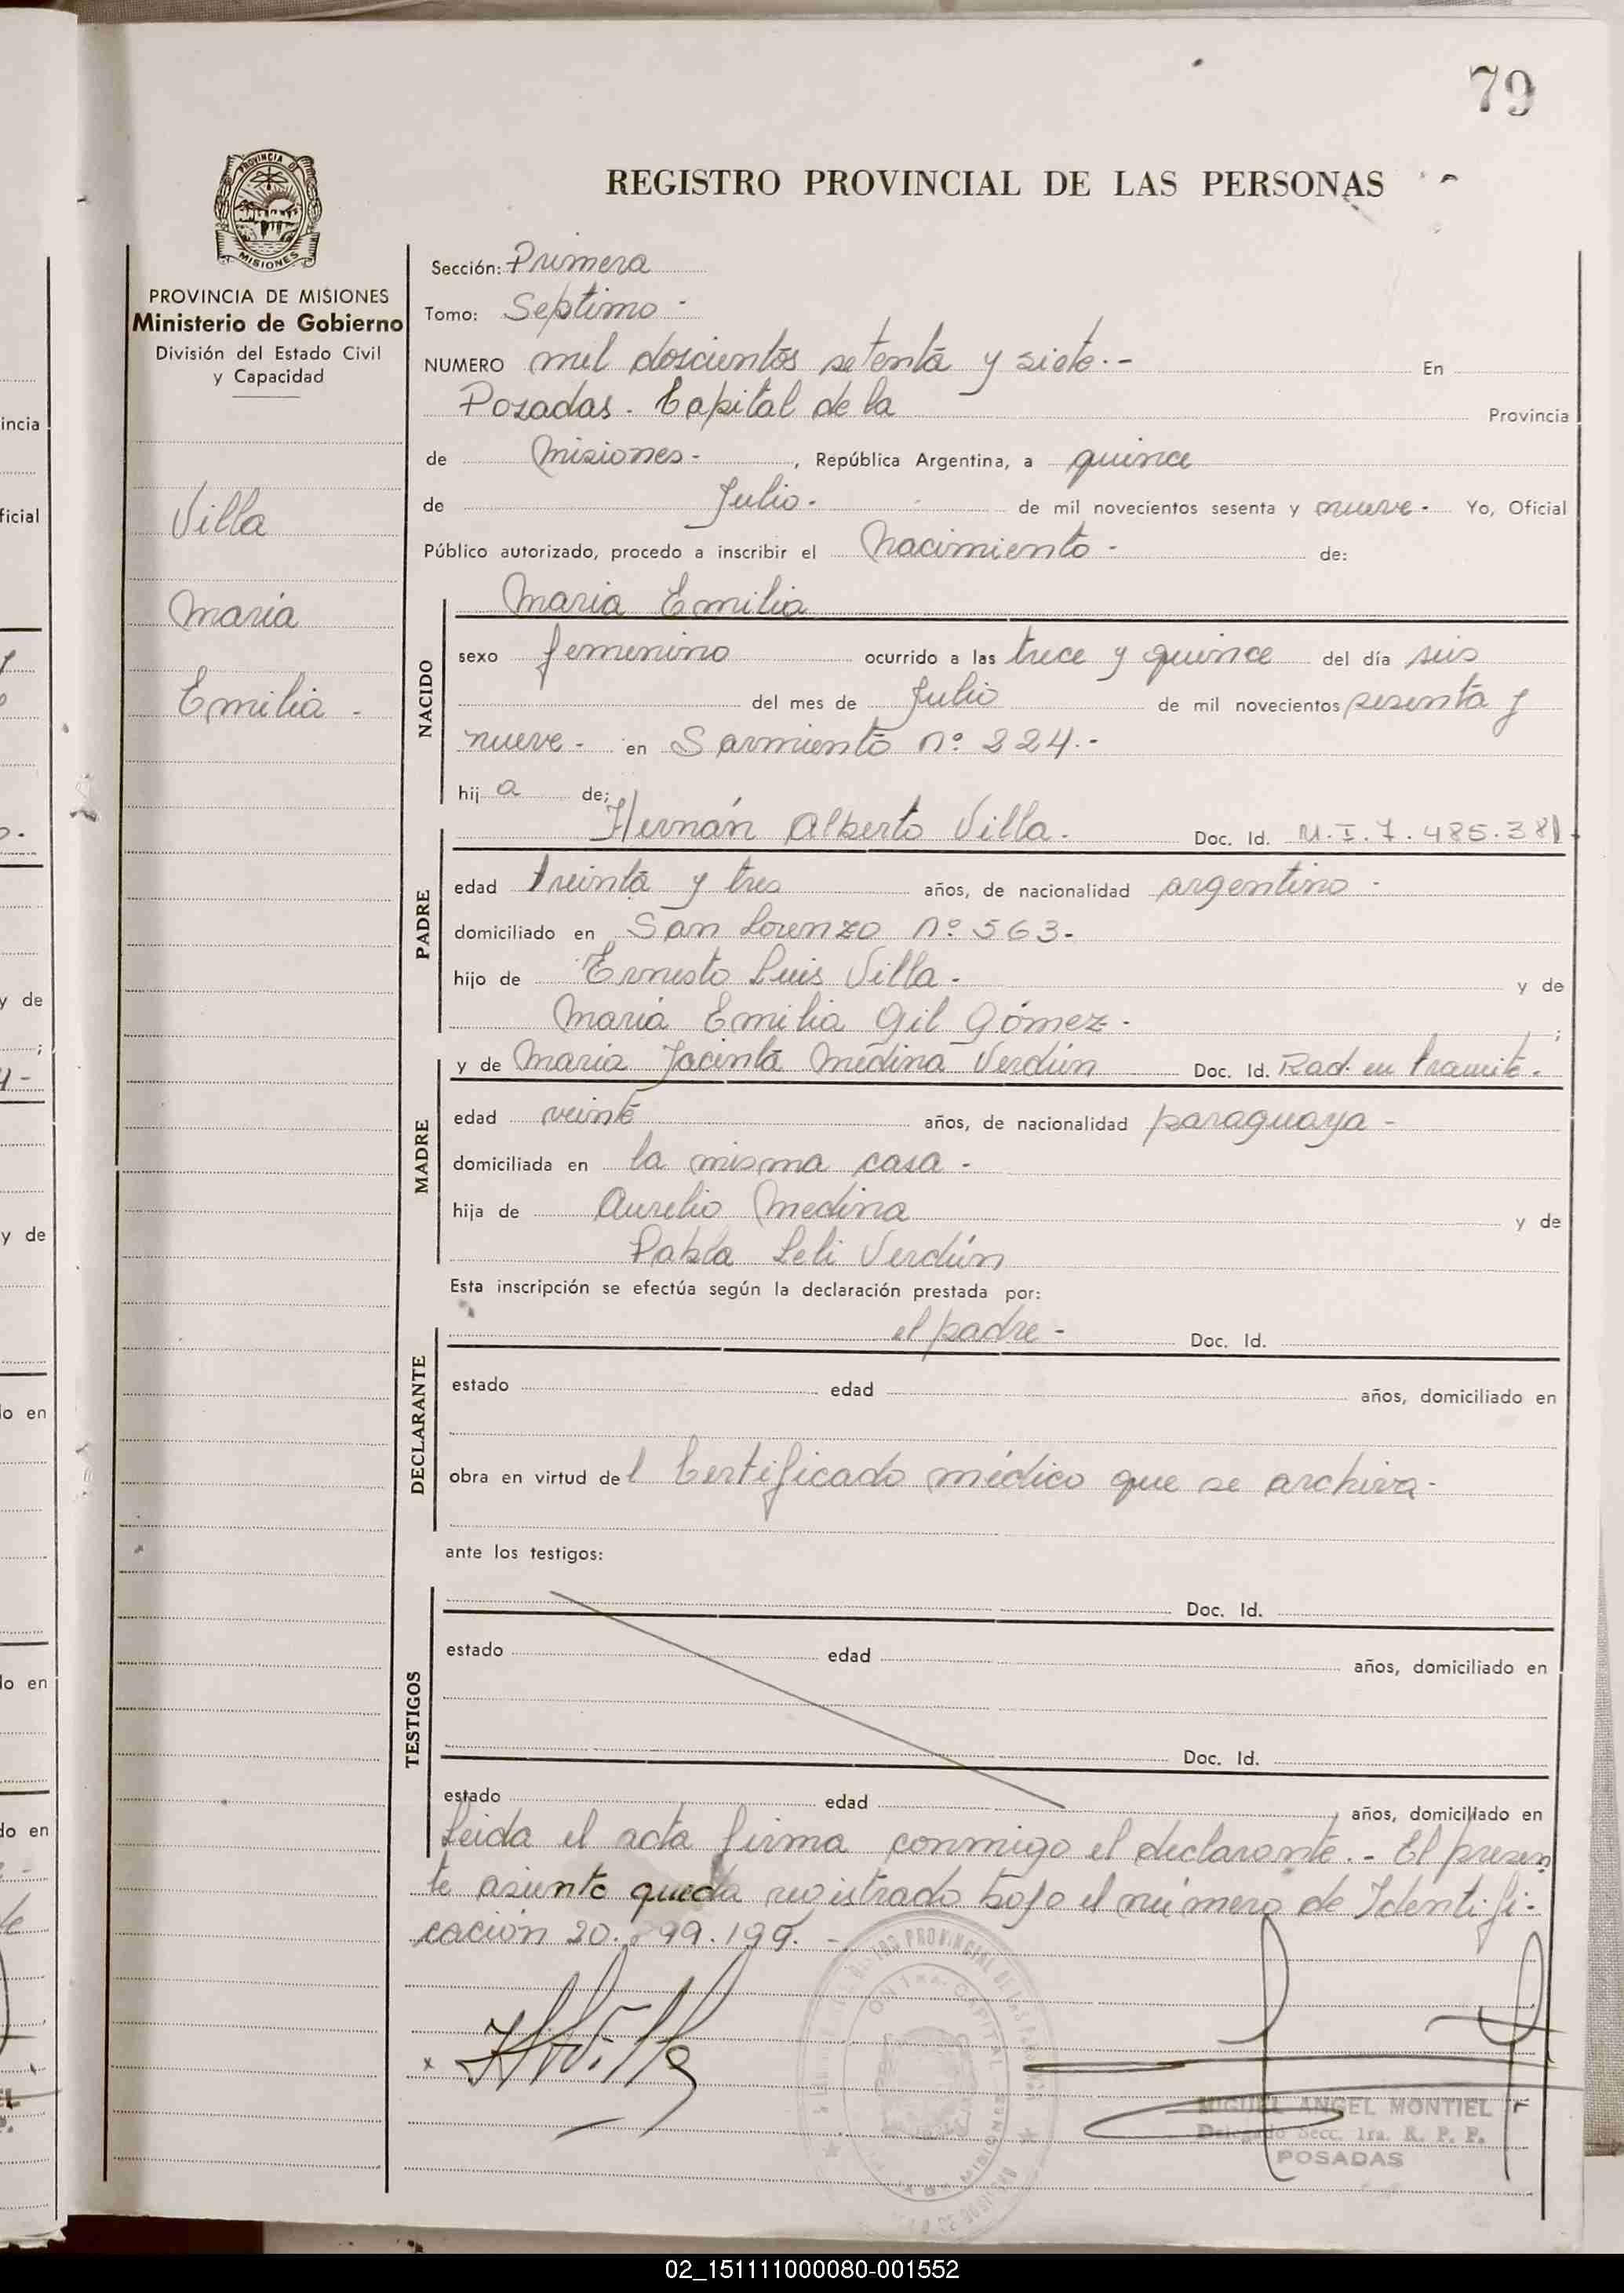 79
REGISTRO PROVINCIAL DE LAS PERSONAS
PROVINCIA DE
MISIONES
PROVINCIA DE MISIONES
Ministerio de Gobierno
División del Estado Civil
y Capacidad
Villa
Maria
Emilia -
Sección: Primera
Tomo: Septimo -
NUMERO mil doscientos setenta y siete. - En
Posadas. Capital de la Provincia
de Misiones - , República Argentina, a quince
de Julio - de mil novecientos sesenta y nueve - Yo, Oficial
Público autorizado, procedo a inscribir el Nacimiento - de:
NACIDO
Maria Emilia
sexo femenino ocurrido a las trece y quince del día seis
del mes de Julio de mil novecientos sesenta y
nueve - en Sarmiento nº 224. -
hij a de;
PADRE
Hernán Alberto Villa - Doc. Id. M.I.7.485.381.
edad treinta y tres años, de nacionalidad argentino -
domiciliado en San Lorenzo nº 563 -
hijo de Ernesto Luis Villa - y de
Maria Emilia Gil Gómez - ;
MADRE
y de Maria Jacinta Medina Verdún Doc. Id. Rad. en tramite.
edad veinte años, de nacionalidad paraguaya -
domiciliada en la misma casa -
hija de Aurelio Medina y de
Pabla Leli Verdún
Esta inscripción se efectúa según la declaración prestada por:
DECLARANTE
el padre - Doc. Id.
estado edad años, domiciliado en
obra en virtud del Certificado médico que se archiva -
ante los testigos:
TESTIGOS
Doc. Id.
estado edad años, domiciliado en
Doc. Id.
estado edad años, domiciliado en
Leida el acta firma conmigo el declarante. - El presen
te asiento queda registrado bajo el número de Identifi-
cación 20. 99.199. -
x HVilla
MIGUEL ANGEL MONTIEL
Delegado Secc. 1ra. R. P. P.
POSADAS
incia
ficial
y de
;
y de
o en
do en
do en
02_151111000080-001552